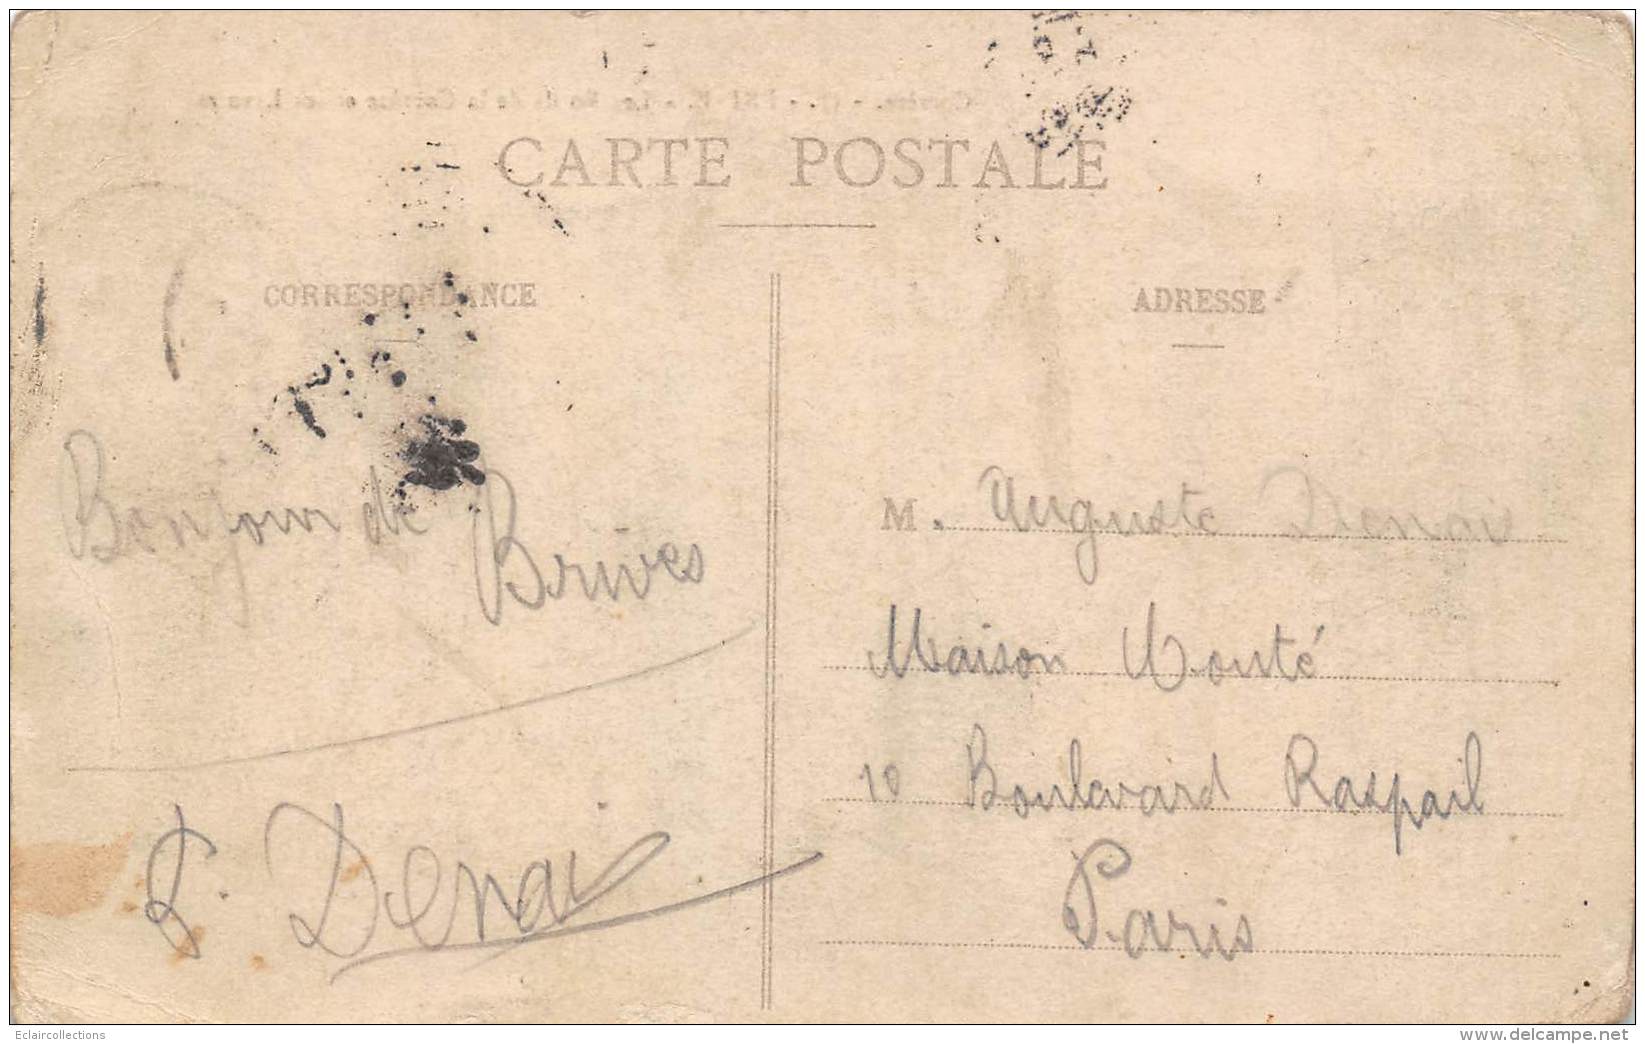 CARTE POSTALE
CORRESPONDANCE
ADRESSE
Bonjour de
Brives
Denai
M. Auguste Denais
Maison
10 Boulevard Raspail
Paris
Eclaircollections
www.delcampe.net